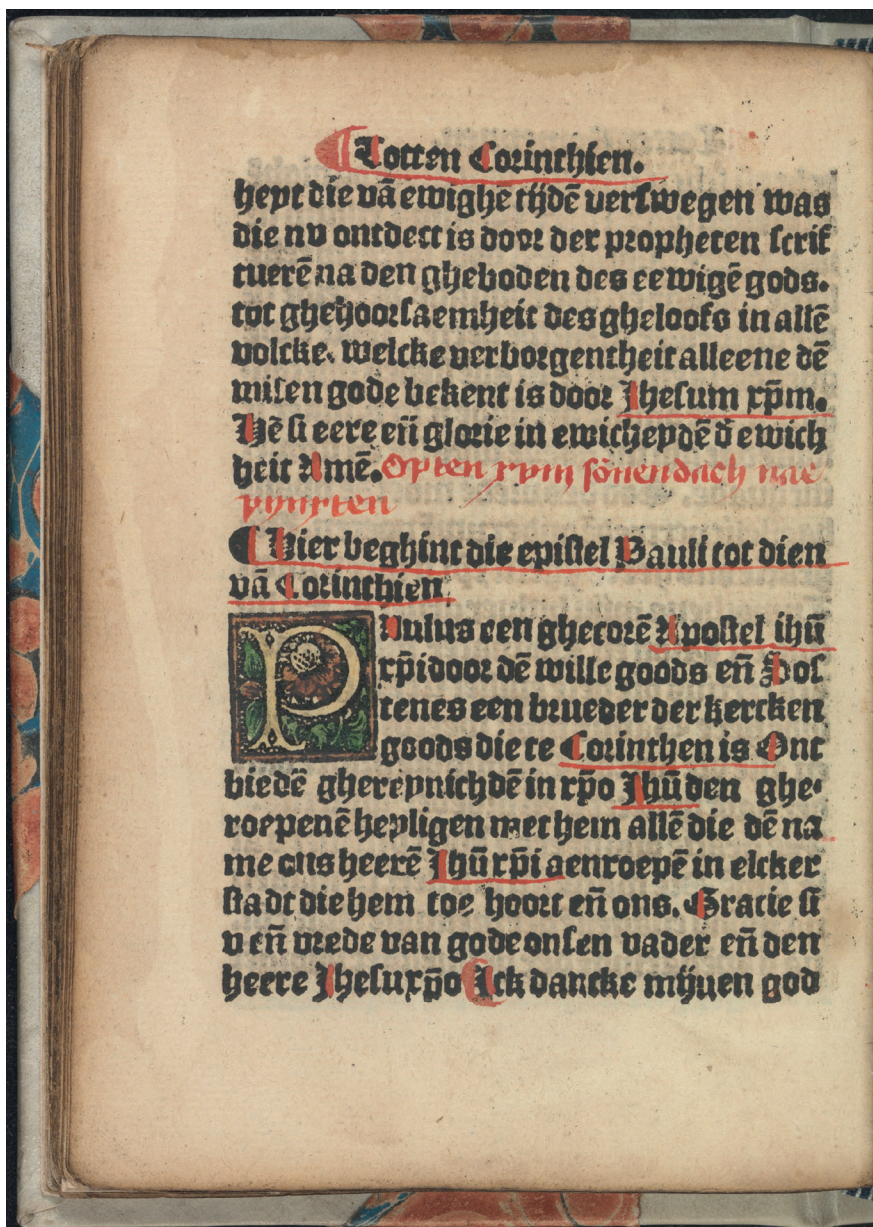 ¶ Totten Corinthien.
heyt die vā ewighe tijdē verswegen was
die nv ontdect is door der propheten scrif
tuerē na den gheboden des eewigē gods.
tot ghehoorsaemheit des gheloofs in allē
volcke. welcke verborgentheit alleene dē
wisen gode bekent is door Jhesum xp̄m.
Hē si eere en̄ glorie in ewicheydē d̄ ewich
heit Amē. Opten xviij sōnendach nae
pijnxten
¶ Hier beghint die epistel Pauli tot dien
vā Corinthien
PAulus een ghecorē Apostel ihū
xp̄i door dē wille goods en̄ Sos
tenes een brueder der kercken
goods die te Corinthen is Ont
biedē ghereynichdē in xp̄o Jhū den ghe⸗
roepenē heyligen met hem allē die dē na
me ons heerē Jhū xp̄i aenroepē in elcker
stadt die hem toe hoort en̄ ons. Gracie si
v en̄ vrede van gode onsen vader en̄ den
heere Jhesu xp̄o Ick dancke mijnen god